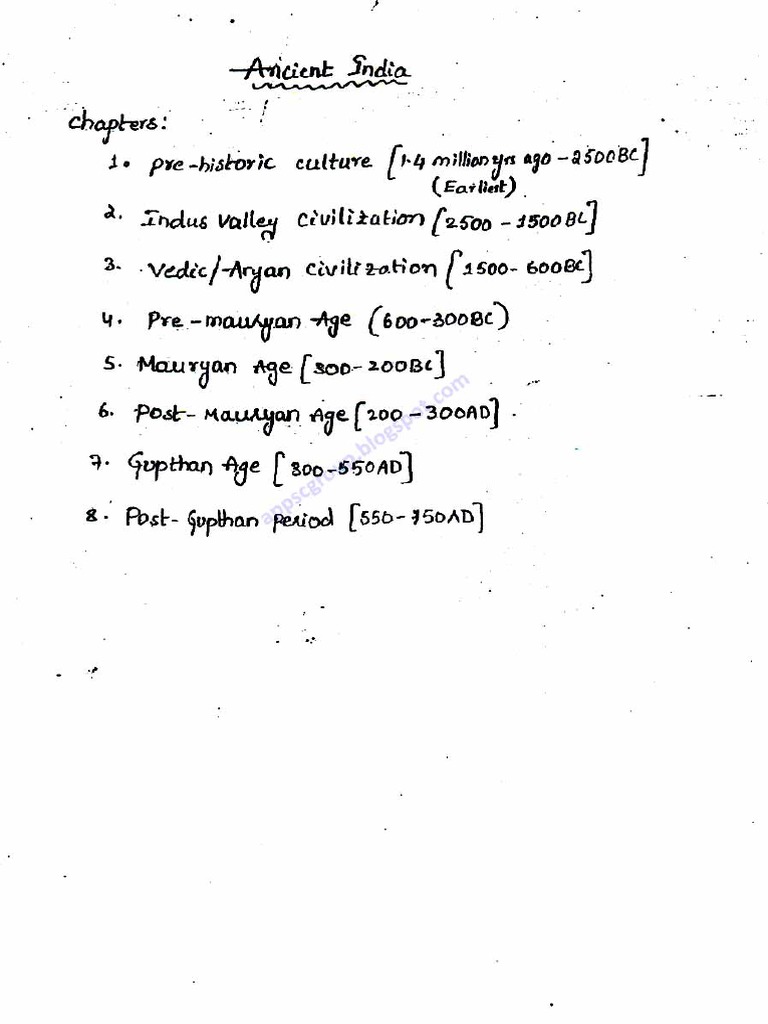 Ancient India
Chapters:
1. Pre-historic culture [1.4 million yrs ago - 2500BC]
(Earliest)
2. Indus Valley Civilization [2500 - 1500BC]
3. Vedic/Aryan Civilization [1500 - 600BC]
4. Pre-mauryan Age (600-300BC)
5. Mauryan Age [300-200BC]
6. Post-Mauryan Age [200-300AD]
7. Gupthan Age [300-550AD]
8. Post-Gupthan Period [550-750AD]
appscgroup.blogspot.com